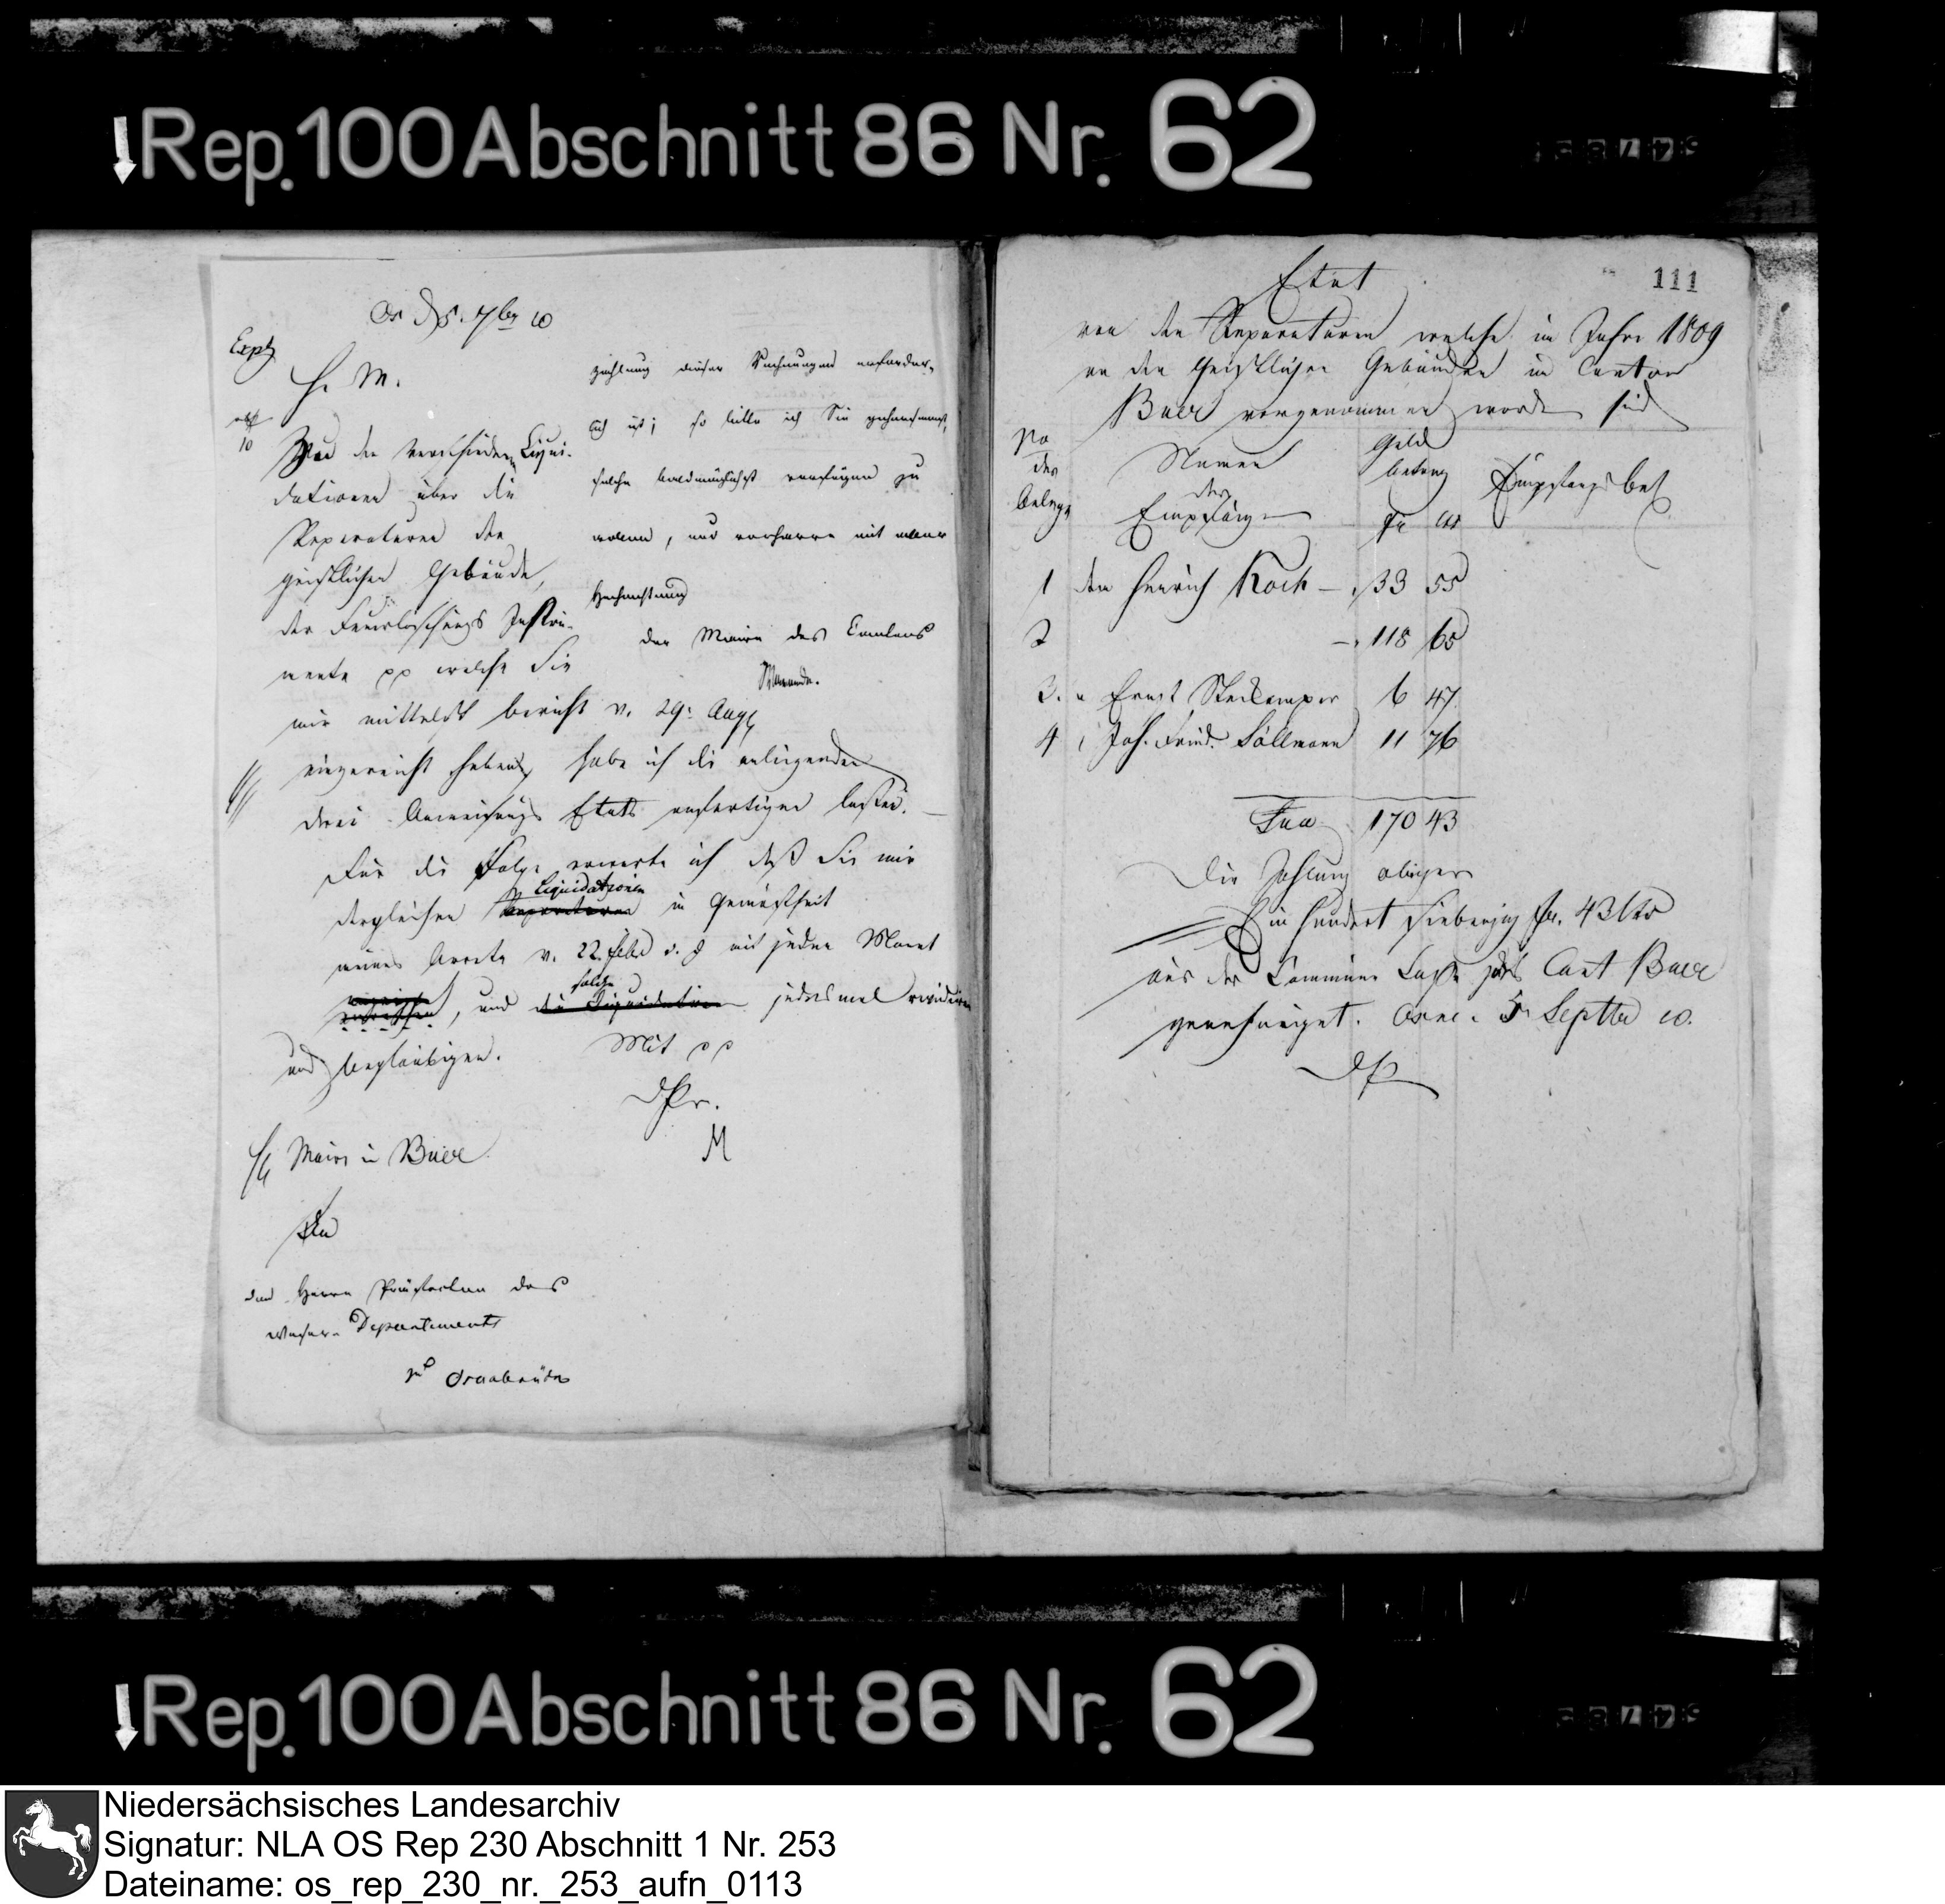 Rep. 100 Abschnitt 86 Nr. 62
Os d 5. 7br 10
Expd
H. M.
Von den verschiedenen Liqui-
dationen über die
Reparaturen der
geistlichen Gebäude,
der Feuerlöschungs Instru-
mente pp welche Sie
mir mittelst Bericht v. 29. Aug
eingereicht haben, habe ich die anliegenden
drei Anweisungs Etats anfertigen lassen.
Für die Folge erwarte ich daß Sie mir
dergleichen Liquidationen in Gemäßheit
meines Arrete v. 22. Febr d. J mit jedem Monat
, und solche jedesmal revidiren
und beglaubigen.
Mit pp
DPr.
M
Maire in Buer
zahlung dieser Rechnungen erforder-
lich ist; so bitte ich Sie gehorsamst,
solche baldmöglichst verfügen zu
wollen, und verharre mit aller
Hochachtung
der Maire des Cantons
An
den Herrn Präfecten des
Weser-Departements
zu Osnabrück
111
Etat
von den Reparaturen welche im Jahre 1809
an den Geistlichen Gebäuden im Canton
Buer vorgenommen worden sind
No der Belege
Namen der Empfänger
Geld betrag
Fr Cts
Empfangs bek
1 dem Henrich Koch — 33 55
2 — 118 65
3. " Ernst Steckamper 6 47
4 " Joh. Fried. Söllmann 11 76
Sua 170 43
Die Zahlung obiger
Ein hundert siebenzig Fr. 43 Cts
aus der Commune Casse des Cant Buer
genehmiget. Osna. 5 Septbr 10.
DP
Rep. 100 Abschnitt 86 Nr. 62
Niedersächsisches Landesarchiv
Signatur: NLA OS Rep 230 Abschnitt 1 Nr. 253
Dateiname: os_rep_230_nr._253_aufn_0113